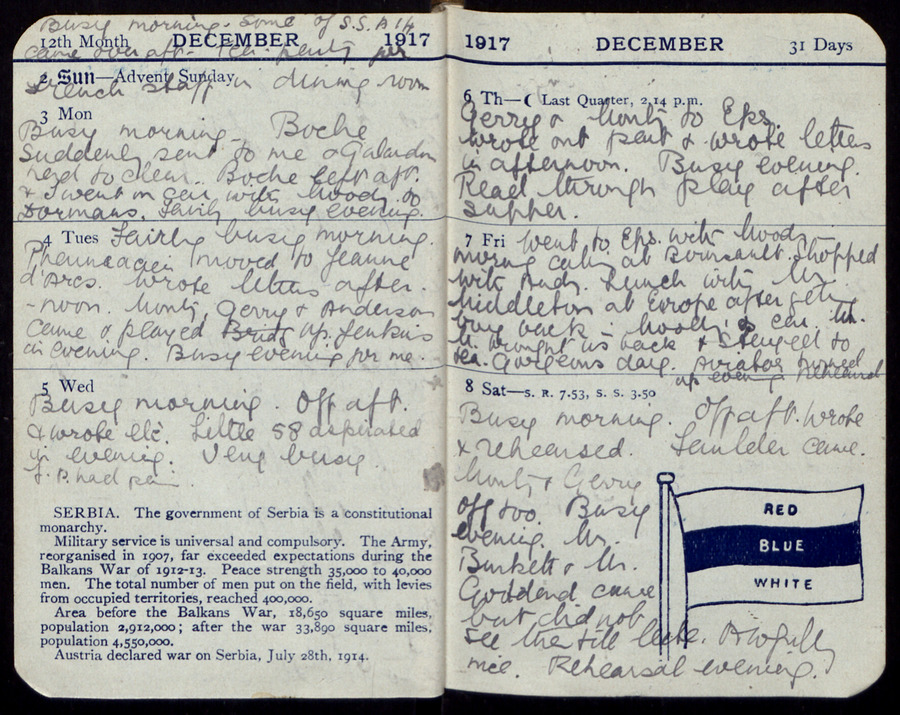 Busy morning. Some of S.S.A 14
12th Month DECEMBER 1917
came over aft. party
2 Sun—Advent Sunday
French staff in dining room
3 Mon
Busy morning Boche
suddenly sent to me &
to clear. Boche left aft.
& I went in car with Moods to
Dormans. Fairly busy evening.
4 Tues Fairly busy morning.
moved to Jeanne
d'Arcs. Wrote letters after-
-noon. Monty, Gerry & Anderson
came & played up. Jenkins
in evening. Busy evening for me.
5 Wed
Busy morning. Off aft.
& wrote etc. Little 58 aspirated
in evening. Very busy.
had
SERBIA. The government of Serbia is a constitutional
monarchy.
Military service is universal and compulsory. The Army,
reorganised in 1907, far exceeded expectations during the
Balkans War of 1912-13. Peace strength 35,000 to 40,000
men. The total number of men put on the field, with levies
from occupied territories, reached 400,000.
Area before the Balkans War, 18,650 square miles,
population 2,912,000; after the war 33,890 square miles,
population 4,550,000.
Austria declared war on Serbia, July 28th, 1914.
1917 DECEMBER 31 Days
6 Th—☾ Last Quarter, 2.14 p.m.
Gerry & Monty to Eps.
Wrote out part & wrote letters
in afternoon. Busy evening.
Read through play after
supper.
7 Fri Went to Eps. with Moods
at Boursault. Shopped
with Lunch with Mr
Middleton at Europe after
back – car.
brought us back & stayed to
tea. Gorgeous day. Aviator
evening Rehearsal
8 Sat—S. R. 7.53, S. S. 3.50
Busy morning. Off aft. Wrote
& rehearsed. came.
Monty & Gerry
off too. Busy
evening. Mr.
Burkett & Mr.
Goddend came
but did not
see the till late. Awfully
nice. Rehearsal evening.
RED
BLUE
WHITE